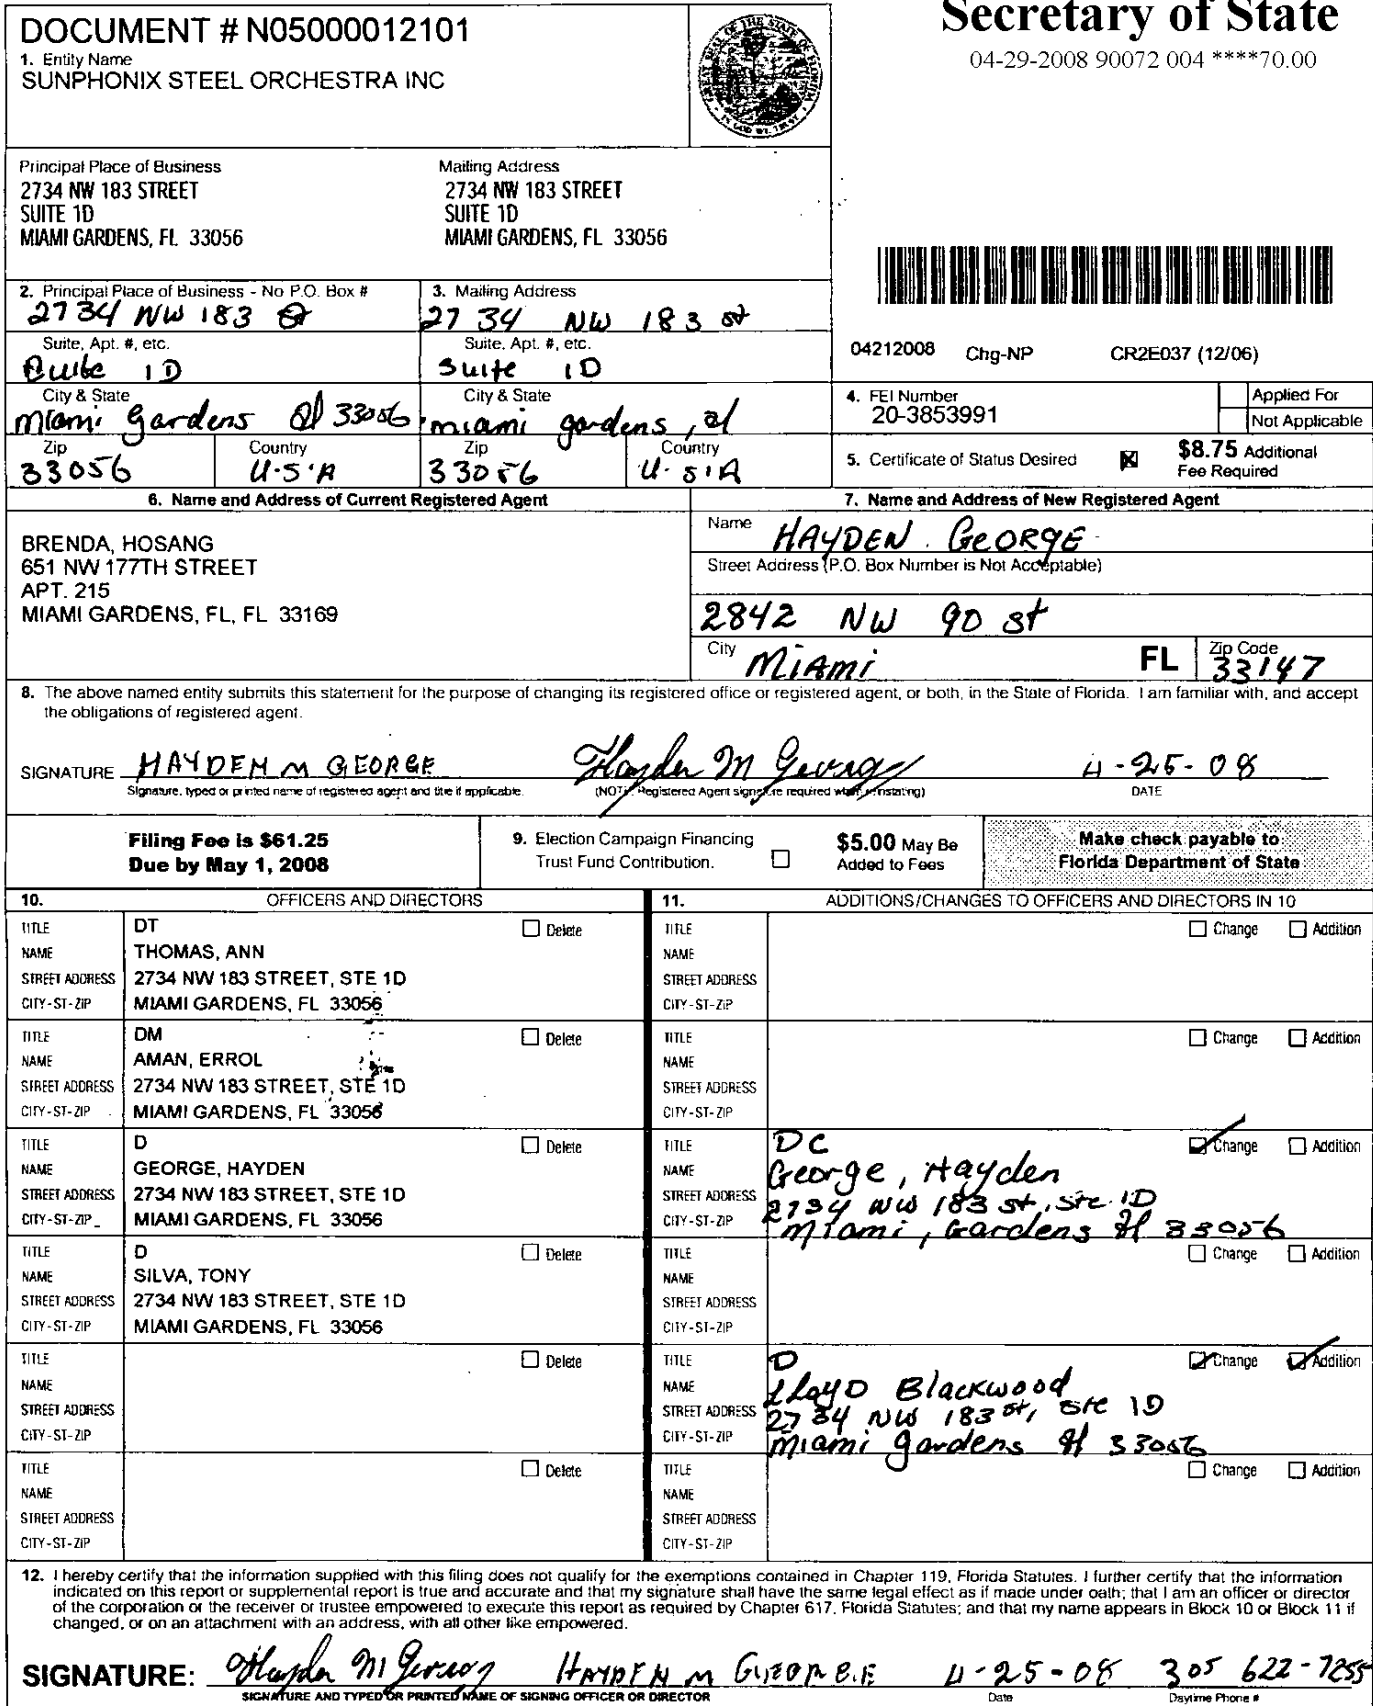 Secretary of State
04-29-2008 90072 004 ****70.00
DOCUMENT # N05000012101
1. Entity Name
SUNPHONIX STEEL ORCHESTRA INC
Principal Place of Business
2734 NW 183 STREET
SUITE 1D
MIAMI GARDENS, FL 33056
Mailing Address
2734 NW 183 STREET
SUITE 1D
MIAMI GARDENS, FL 33056
2. Principal Place of Business - No P.O. Box #
2734 NW 183 St
Suite, Apt. #, etc.
Suite 1D
City & State
Miami Gardens Fl 33056
Zip
33056
Country
U.S.A
3. Mailing Address
2734 NW 183 st
Suite, Apt. #, etc.
Suite 1D
City & State
miami gardens, fl
Zip
33056
Country
U.S.A
04212008 Chg-NP CR2E037 (12/06)
4. FEI Number
20-3853991
Applied For
Not Applicable
5. Certificate of Status Desired
$8.75 Additional
Fee Required
6. Name and Address of Current Registered Agent
BRENDA, HOSANG
651 NW 177TH STREET
APT. 215
MIAMI GARDENS, FL, FL 33169
7. Name and Address of New Registered Agent
Name HAYDEN GEORGE
Street Address (P.O. Box Number is Not Acceptable)
2842 NW 90 st
City Miami FL Zip Code 33147
8. The above named entity submits this statement for the purpose of changing its registered office or registered agent, or both, in the State of Florida. I am familiar with, and accept
the obligations of registered agent.
SIGNATURE HAYDEN M GEORGE Hayden M George 4-25-08
Signature, typed or printed name of registered agent and title if applicable. (NOTE: Registered Agent signature required when reinstating) DATE
Filing Fee is $61.25
Due by May 1, 2008
9. Election Campaign Financing
Trust Fund Contribution.
$5.00 May Be
Added to Fees
Make check payable to
Florida Department of State
10. OFFICERS AND DIRECTORS
TITLE DT Delete
NAME THOMAS, ANN
STREET ADDRESS 2734 NW 183 STREET, STE 1D
CITY-ST-ZIP MIAMI GARDENS, FL 33056
TITLE DM Delete
NAME AMAN, ERROL
STREET ADDRESS 2734 NW 183 STREET, STE 1D
CITY-ST-ZIP MIAMI GARDENS, FL 33056
TITLE D Delete
NAME GEORGE, HAYDEN
STREET ADDRESS 2734 NW 183 STREET, STE 1D
CITY-ST-ZIP MIAMI GARDENS, FL 33056
TITLE D Delete
NAME SILVA, TONY
STREET ADDRESS 2734 NW 183 STREET, STE 1D
CITY-ST-ZIP MIAMI GARDENS, FL 33056
TITLE Delete
NAME
STREET ADDRESS
CITY-ST-ZIP
TITLE Delete
NAME
STREET ADDRESS
CITY-ST-ZIP
11. ADDITIONS/CHANGES TO OFFICERS AND DIRECTORS IN 10
TITLE Change Addition
NAME
STREET ADDRESS
CITY-ST-ZIP
TITLE Change Addition
NAME
STREET ADDRESS
CITY-ST-ZIP
TITLE DC Change Addition
NAME George, Hayden
STREET ADDRESS 2734 NW 183 st, ste 1D
CITY-ST-ZIP Miami, Gardens fl 33056
TITLE Change Addition
NAME
STREET ADDRESS
CITY-ST-ZIP
TITLE D Change Addition
NAME LloyD Blackwood
STREET ADDRESS 2734 NW 183 st, ste 1D
CITY-ST-ZIP Miami gardens fl 33056
TITLE Change Addition
NAME
STREET ADDRESS
CITY-ST-ZIP
12. I hereby certify that the information supplied with this filing does not qualify for the exemptions contained in Chapter 119, Florida Statutes. I further certify that the information
indicated on this report or supplemental report is true and accurate and that my signature shall have the same legal effect as if made under oath; that I am an officer or director
of the corporation or the receiver or trustee empowered to execute this report as required by Chapter 617, Florida Statutes; and that my name appears in Block 10 or Block 11 if
changed, or on an attachment with an address, with all other like empowered.
SIGNATURE: Hayden M George HAYDEN M GEORGE 4-25-08 305 622-7255
SIGNATURE AND TYPED OR PRINTED NAME OF SIGNING OFFICER OR DIRECTOR Date Daytime Phone #